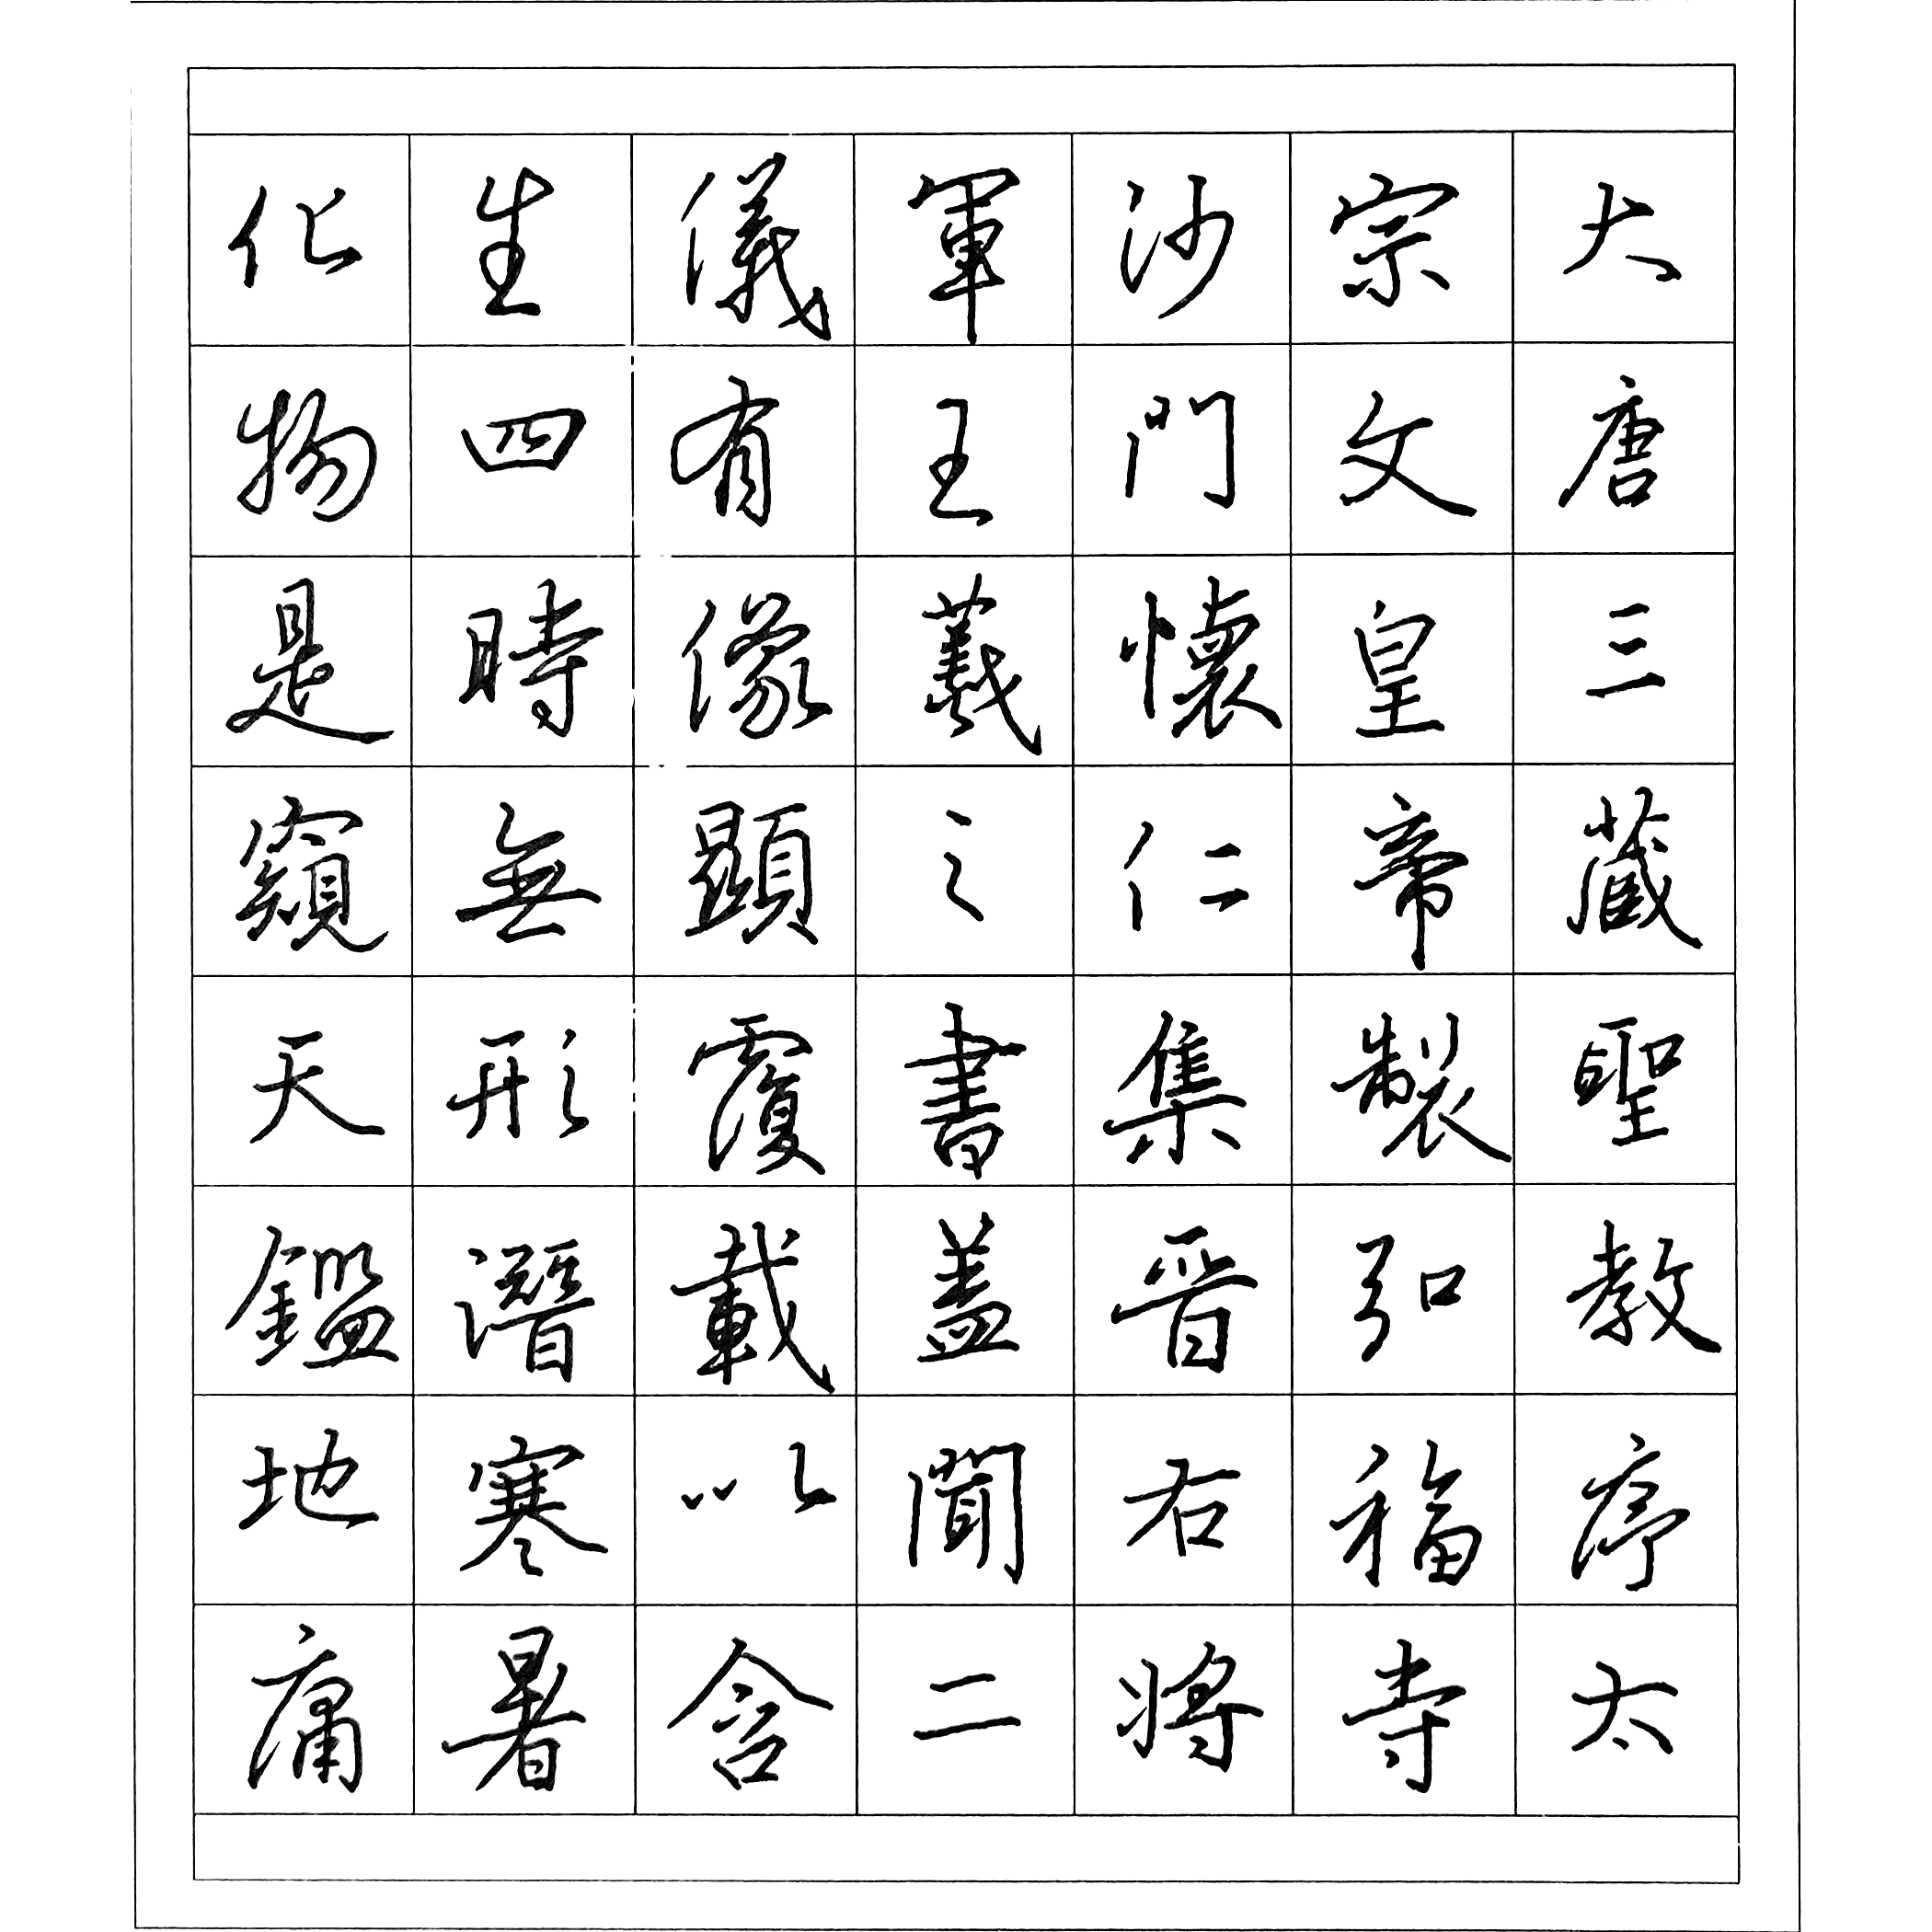 大唐三藏聖教序太
宗文皇帝製弘福寺
沙門懷仁集晉右將
軍王羲之書蓋聞二
儀有像顯覆載以含
生四時無形潛寒暑
化物是窺天鑑地庸